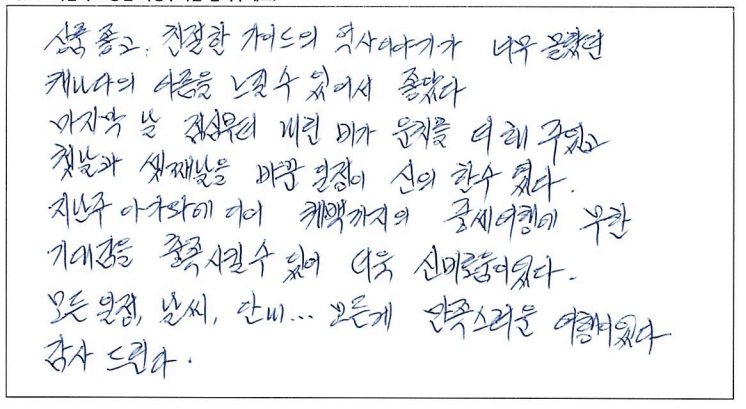 친절한 가이드의 역사이야기가 너무 몰랐던
캐나다의 다름을 느낄 수 있어서 좋았다
마지막 날 점심부터 내린 비가 운치를 더 해 주었고
첫날과 셋째날을 바꾼 일정이 신의 한수 였다.
지난주 아가와에 이어 퀘백까지의 여행에 무한
기대감을 충족시킬 수 있어 더욱
모든 일정, 날씨, 단비... 모든게 만족스러운 여행이었다
감사 드린다.